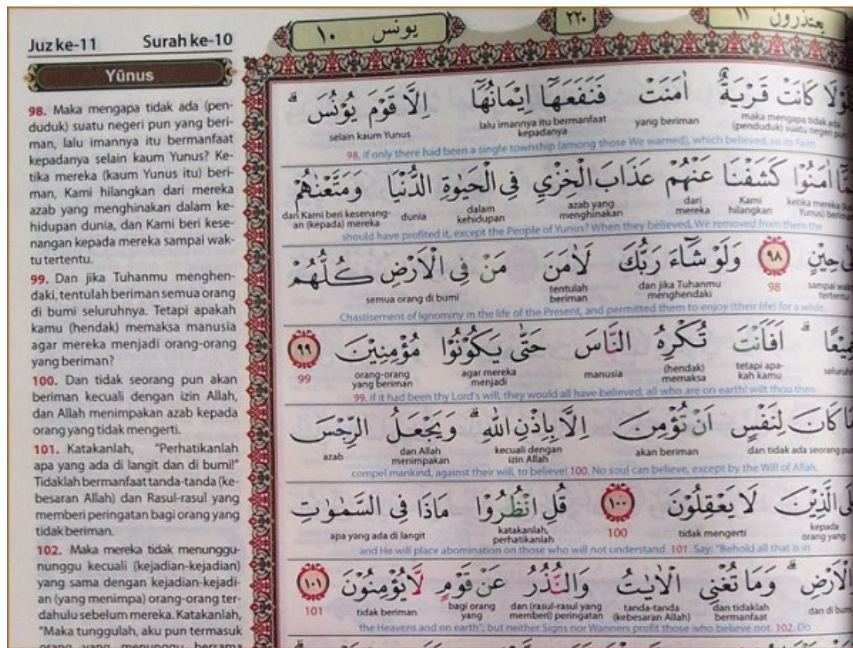 Juz ke-11 Surah ke-10
Yūnus
98. Maka mengapa tidak ada (pen-
duduk) suatu negeri pun yang beri-
man, lalu imannya itu bermanfaat
kepadanya selain kaum Yunus? Ke-
tika mereka (kaum Yunus itu) beri-
man, Kami hilangkan dari mereka
azab yang menghinakan dalam ke-
hidupan dunia, dan Kami beri kese-
nangan kepada mereka sampai wak-
tu tertentu.
99. Dan jika Tuhanmu menghen-
daki, tentulah beriman semua orang
di bumi seluruhnya. Tetapi apakah
kamu (hendak) memaksa manusia
agar mereka menjadi orang-orang
yang beriman?
100. Dan tidak seorang pun akan
beriman kecuali dengan izin Allah,
dan Allah menimpakan azab kepada
orang yang tidak mengerti.
101. Katakanlah, "Perhatikanlah
apa yang ada di langit dan di bumi!"
Tidaklah bermanfaat tanda-tanda (ke-
besaran Allah) dan Rasul-rasul yang
memberi peringatan bagi orang yang
tidak beriman.
102. Maka mereka tidak menunggu-
nunggu kecuali (kejadian-kejadian)
yang sama dengan kejadian-kejadi-
an (yang menimpa) orang-orang ter-
dahulu sebelum mereka. Katakanlah,
"Maka tunggulah, aku pun termasuk
orang yang menunggu bersama
يعتذرون ١١ ٢٢٠ يونس ١٠
كَانَتْ قَرْيَةٌ اٰمَنَتْ فَنَفَعَهَآ اِيْمَانُهَآ اِلَّا قَوْمَ يُوْنُسَۗ
maka mengapa tidak ada yang beriman lalu imannya itu bermanfaat selain kaum Yunus
(penduduk) suatu negeri pun kepadanya
98. If only there had been a single township (among those We warned), which believed, so its Faith
اٰمَنُوْا كَشَفْنَا عَنْهُمْ عَذَابَ الْخِزْيِ فِى الْحَيٰوةِ الدُّنْيَا وَمَتَّعْنٰهُمْ
ketika mereka Kami dari azab yang dalam dunia dan Kami beri kesenang-
Yunus) hilangkan mereka menghinakan kehidupan an (kepada) mereka
should have profited it, except the People of Yunus? When they believed, We removed from them the
حِيْنٍ ٩٨ وَلَوْ شَاۤءَ رَبُّكَ لَاٰمَنَ مَنْ فِى الْاَرْضِ كُلُّهُمْ
sampai 98 dan jika Tuhanmu tentulah semua orang di bumi
tertentu menghendaki beriman
Chastisement of Ignominy in the life of the Present, and permitted them to enjoy (their life) for a while.
اَفَاَنْتَ تُكْرِهُ النَّاسَ حَتّٰى يَكُوْنُوْا مُؤْمِنِيْنَ ٩٩
tetapi apa- (hendak) manusia agar mereka orang-orang 99
kah kamu memaksa menjadi yang beriman
99. If it had been thy Lord's will, they would all have believed, all who are on earth! wilt thou then
كَانَ لِنَفْسٍ اَنْ تُؤْمِنَ اِلَّا بِاِذْنِ اللّٰهِۗ وَيَجْعَلُ الرِّجْسَ
dan tidak ada seorang pun akan beriman kecuali dengan dan Allah azab
izin Allah menimpakan
compel mankind, against their will, to believe! 100. No soul can believe, except by the Will of Allah,
الَّذِيْنَ لَا يَعْقِلُوْنَ ١٠٠ قُلِ انْظُرُوْا مَاذَا فِى السَّمٰوٰتِ
kepada tidak mengerti 100 katakanlah, apa yang ada di langit
orang yang perhatikanlah
and He will place abomination on those who will not understand. 101. Say: "Behold all that is in
الْاَرْضِۗ وَمَا تُغْنِى الْاٰيٰتُ وَالنُّذُرُ عَنْ قَوْمٍ لَّا يُؤْمِنُوْنَ ١٠١
dan di bumi dan tidaklah tanda-tanda dan (rasul-rasul yang bagi orang tidak beriman 101
bermanfaat (kebesaran Allah) memberi) peringatan yang
the Heavens and on earth"; but neither Signs nor Wanners profit those who believe not. 102. Do